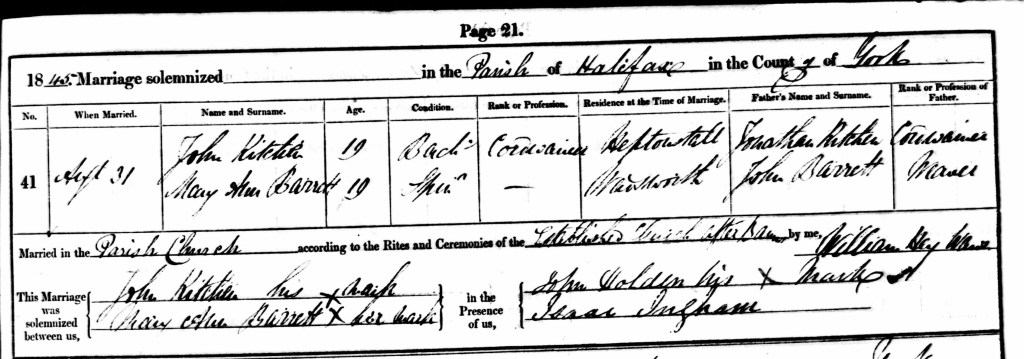 Page 21.
1845 Marriage solemnized in the Parish of Halifax in the County of York
No. When Married. Name and Surname. Age. Condition. Rank or Profession. Residence at the Time of Marriage. Father's Name and Surname. Rank or Profession of Father.
John Kitchen 19 Bach Cordwainer Heptonstall Jonathan Kitchen Cordwainer
41 31 Mary Ann Barrett 19 Spin — Wadsworth John Barrett
Married in the Parish Church according to the Rites and Ceremonies of the Established Church after Banns by me, William Hey
This Marriage was solemnized between us,
John Kitchen his x mark
Mary Ann Barrett x her mark
in the Presence of us,
John Holden his x Mark
Isaac Ingham